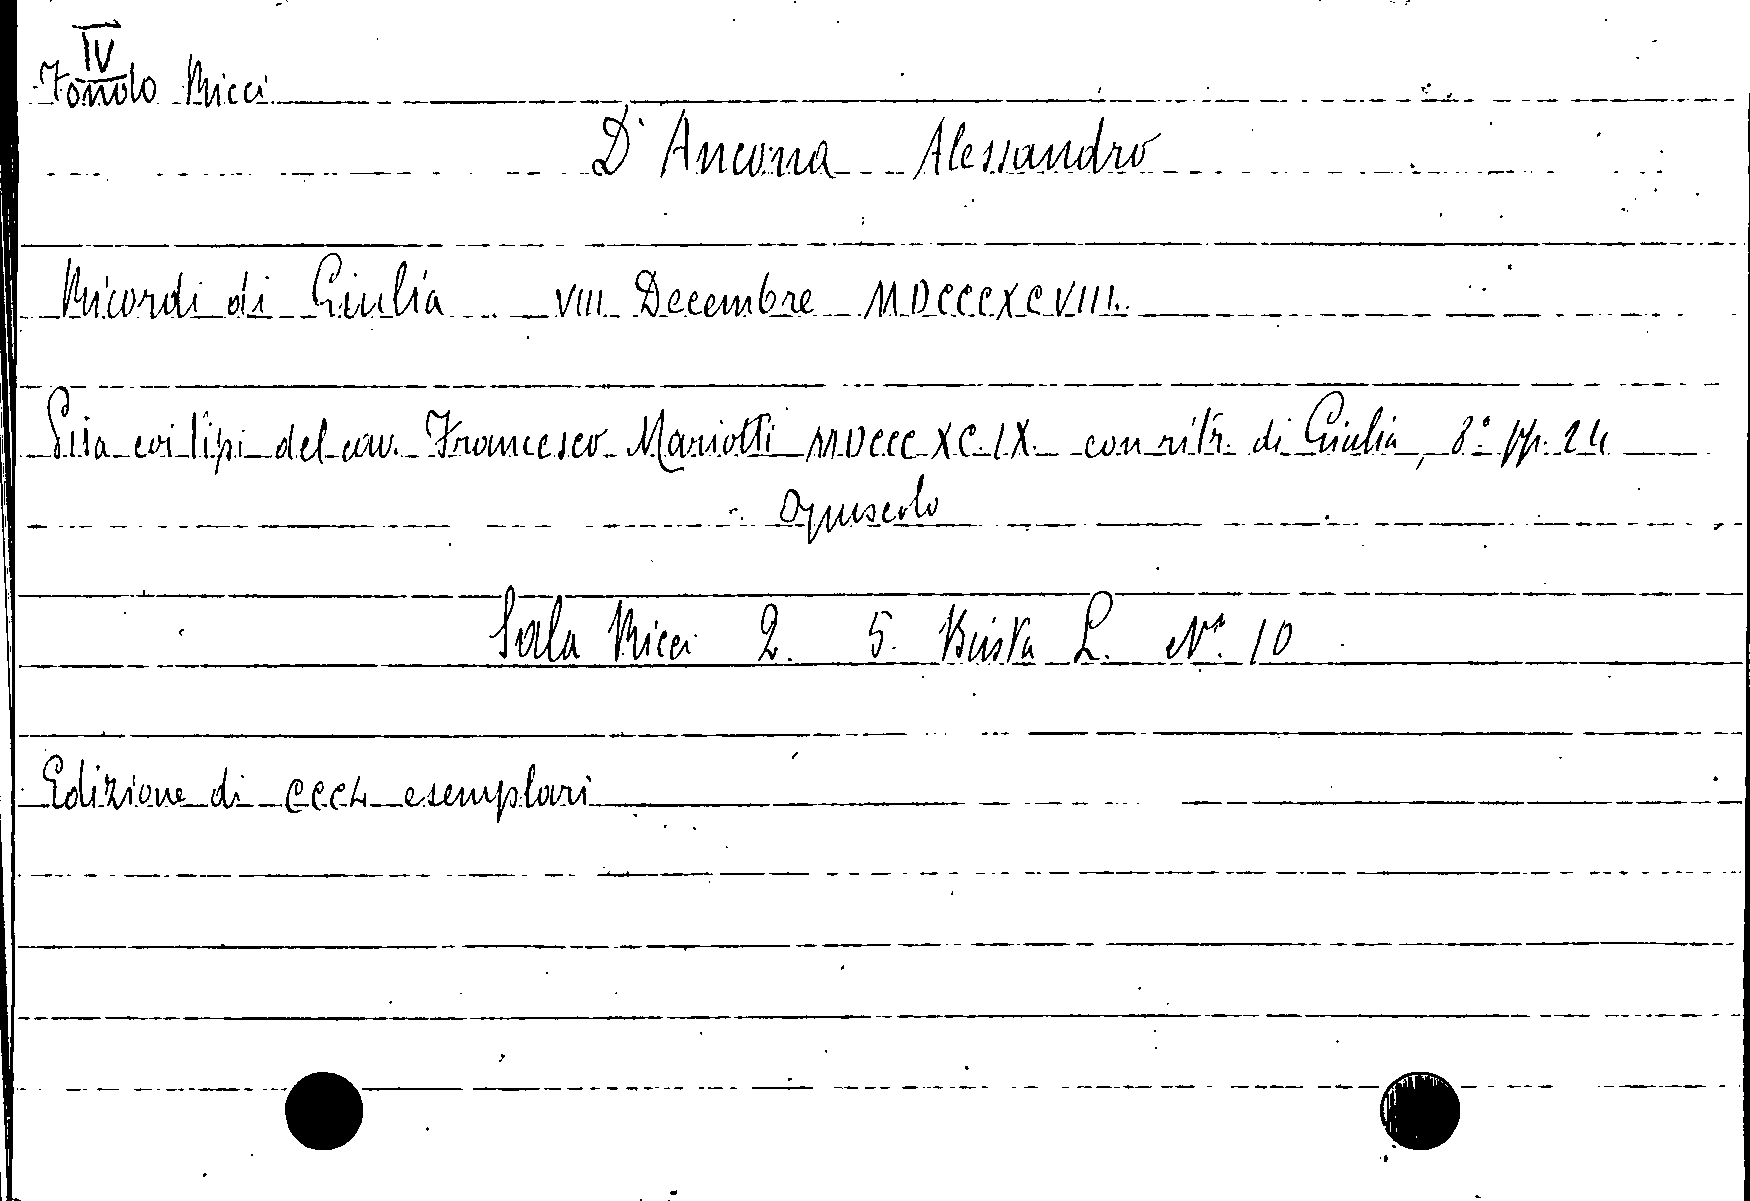 IV
Fondo Ricci
D'Ancona Alessandro
Ricordi di Giulia VIII Decembre MDCCCXCVIII.
Pisa coi tipi del cav. Francesco Mariotti MDCCCXCIX. con ritr. di Giulia, 8° pp. 24
Opuscolo
Sala Ricci 2. 5. Busta L. N° 10
Edizione di CCCL esemplari